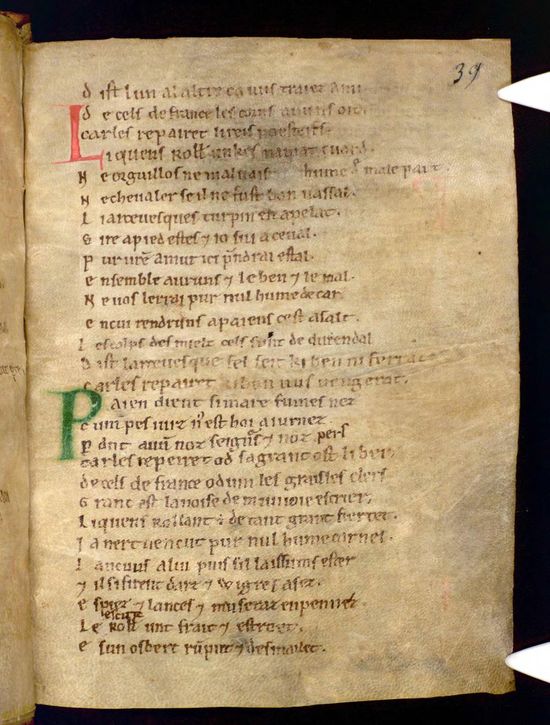 39
D ist lun al altre ca vus traiez ami
D e cels de france les corns auuns oit
Carles repairet li reis poesteifs.
Li quens roll' unkes namat cuard.
N e orguillos ne maluais hume d male part.
N e cheualer se il ne fust bon uassal.
L i arceuesques turpin en apelat.
S ire a pied estes ⁊ io sui a ceual.
P ur ure amur ici pndrai estal.
E nsemble auruns ⁊ le ben ⁊ le mal.
N e uos lerrai pur nul hume de car.
E ncui rendruns a paiens cest asalt.
L es colps des mielz cels sunt de durendal
D ist larceuesque fel seit ki ben ni ferrat
Carles repairet ki ben nus uengerat.
Paien dient si mare fumes nez
Cum pes iurz n' est hoi aiurnez
P dut auu noz seignrs ⁊ noz pers
Carles repeiret od sa grant ost li ber.
De cels de france odum les graisles clers
G rant est la noise de munioie escrier.
L i quens rollant ÷ de tant grant fiertet.
I a nert uencut pur nul hume carnel.
L ancuns a lui puis sil laissums ester
⁊ il si firent darz ⁊ wigres asez.
E spiez ⁊ lances ⁊ museraz enpennez
escut
Le roll' unt frait ⁊ estroet.
E sun osberc ruput ⁊ desmailet.